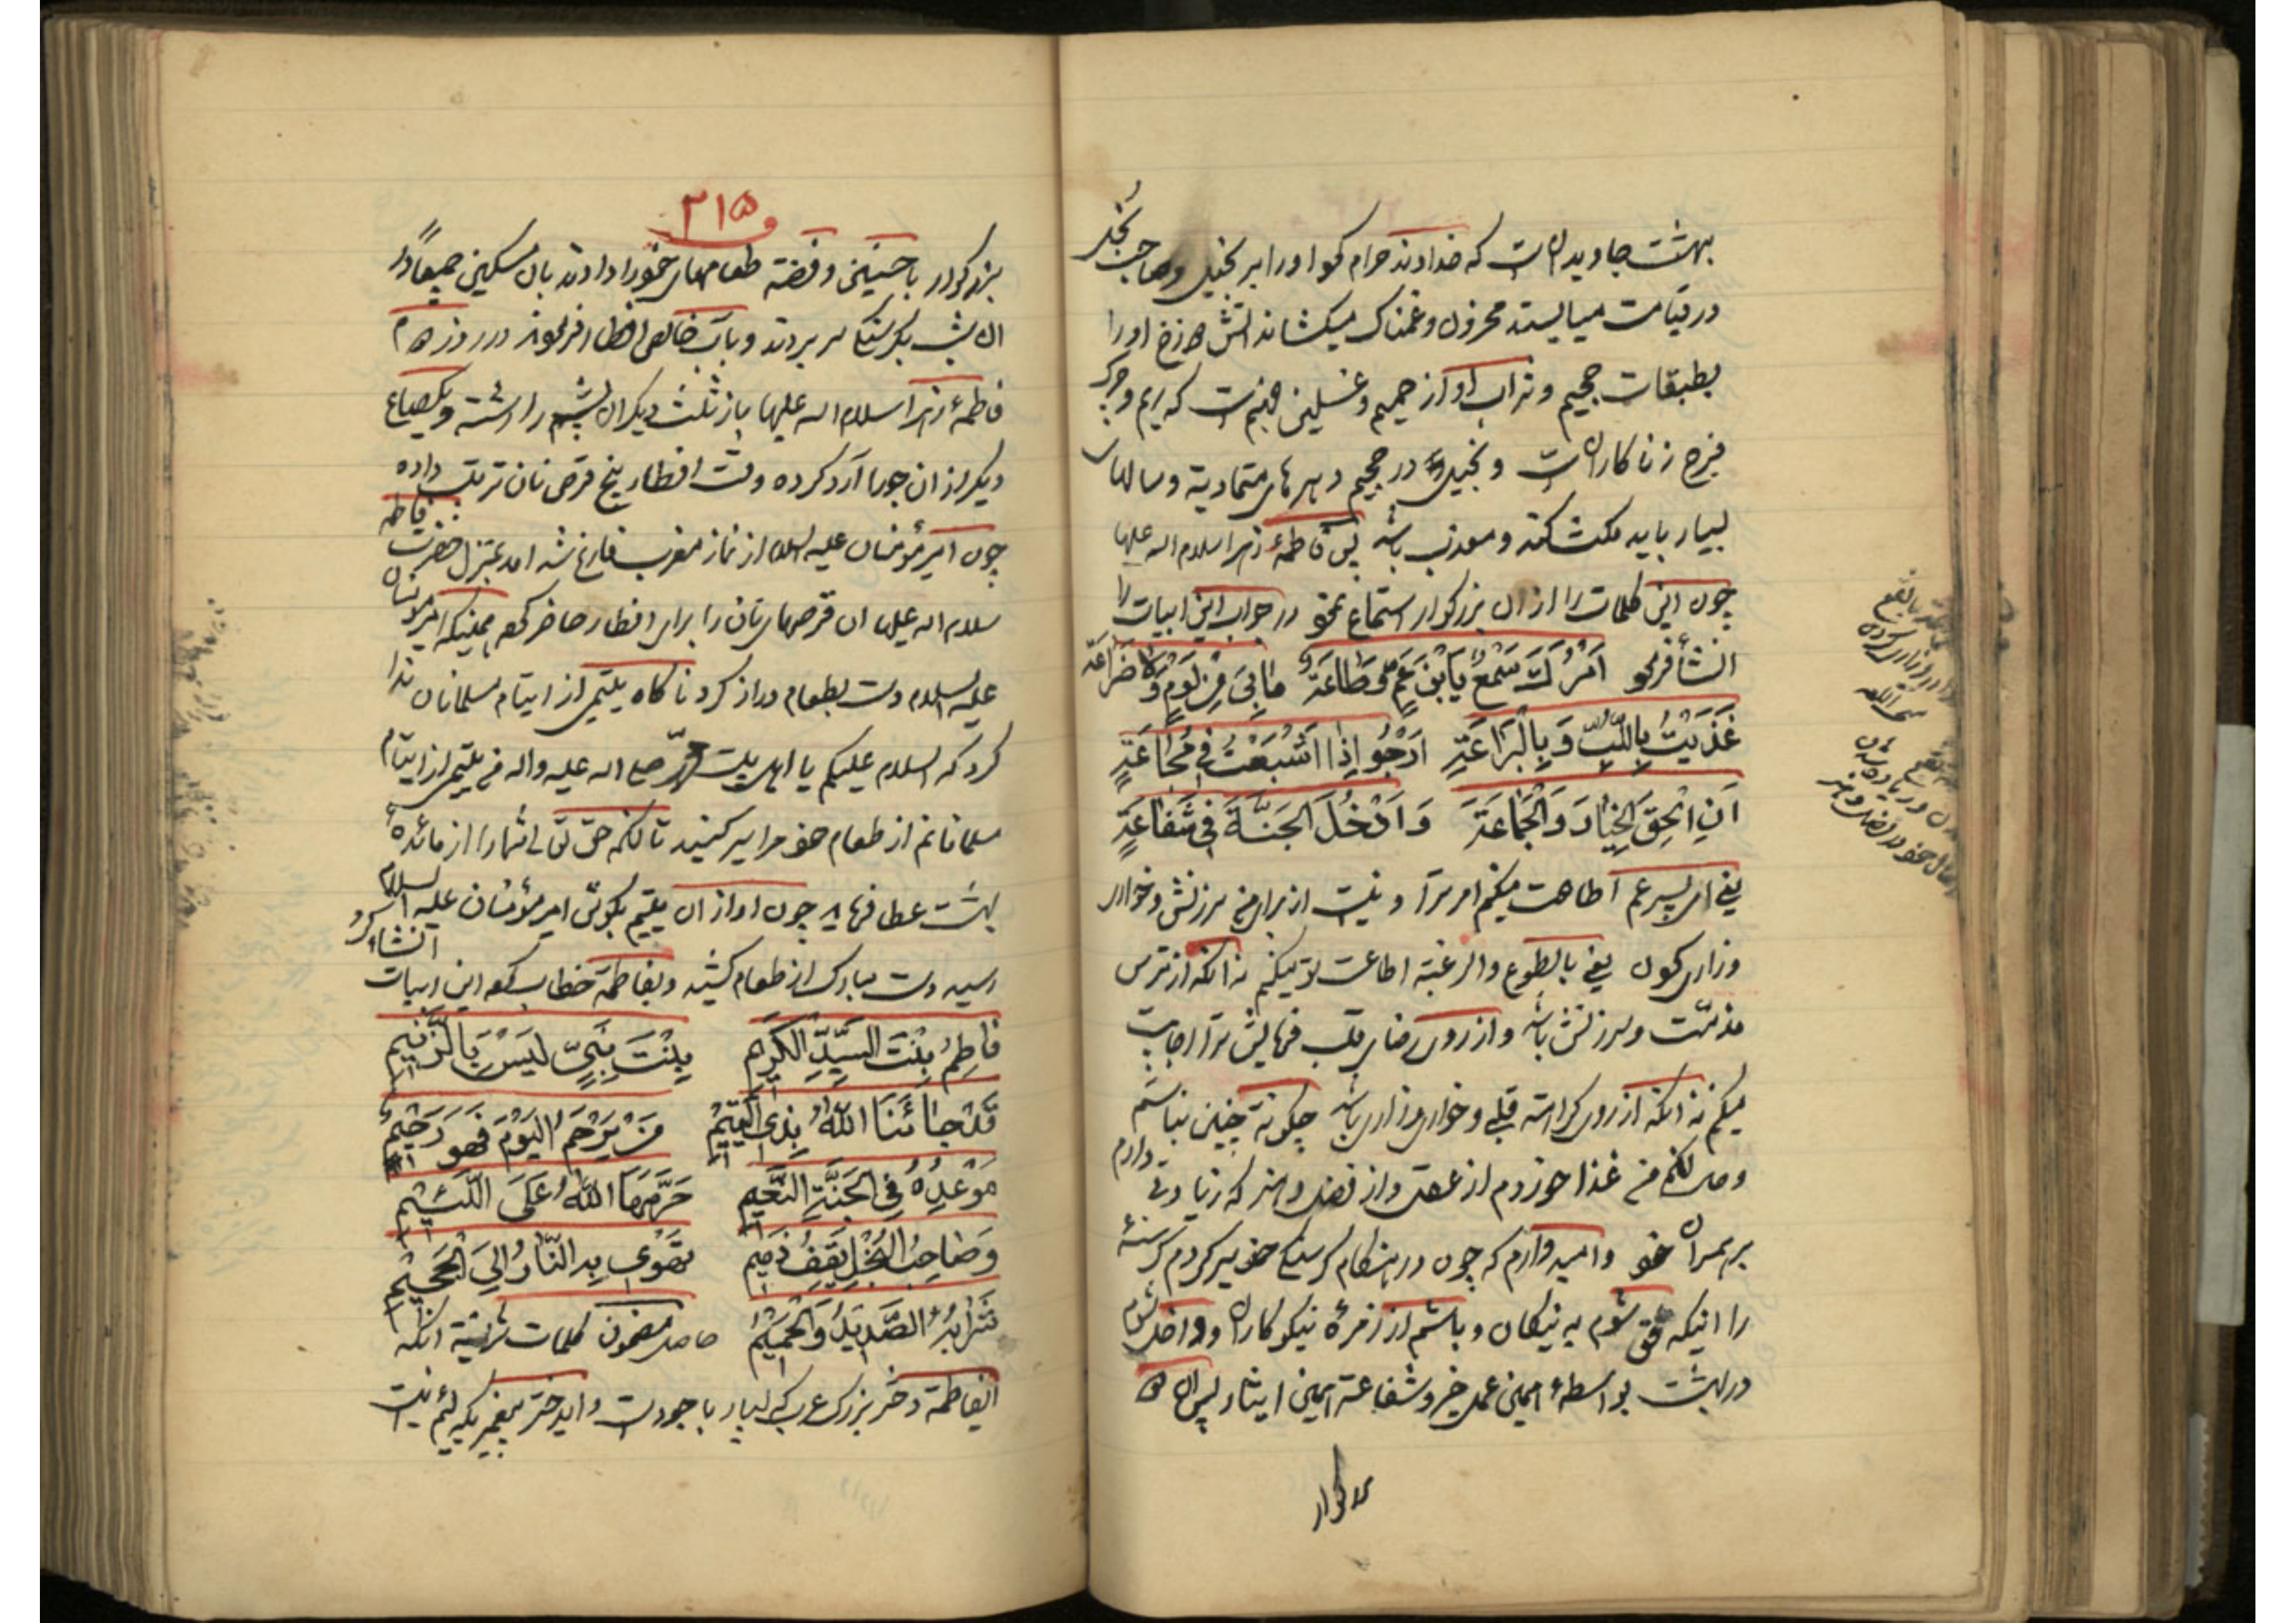 بهشت جاویدان است که خداوند حرام کرد او را بر بخیل و صاحب بخل
در قیامت میایستد محزون و غمناک میکشاند اتش دوزخ او را
بطبقات جحیم و شراب او از حمیم و غسلین جهنم است که ریم و چرک
فرج زنا کاران است و بخیل در جحیم دهرهای متمادیة و سالهای
بسیار باید مکث کند و معذب باشد پس فاطمهٔ زهرا سلام اله علیها
چون این کلمات را از آن بزرکوار استماع نمود در جواب این ابیات را
انشأ فرمود اَمْرُكَ سَمْعٌ یَابْنَ عَمٍّ وَطَاعَة مٰابِیَ مِنْ لَوْمٍ وَلاٰ ضَرٰاعَة
غُذِّیْتُ بِاللُّبِّ وَبِالْبَرَاعَةِ اَرْجُو اِذٰا اَشْبَعْتُ فِی مَجٰاعَةٍ
اَنْ اَلْحَقَ الْخِیٰارَ وَالْجَمٰاعَةَ وَ اَدْخُلَ الْجَنَّةَ فِی شَفٰاعَةٍ
یعنی ای پسر عم اطاعت میکنم امر ترا و نیست از برای من سرزنش و خواری
وزاری کردن یعنی بالطوع والرغبة اطاعت تو میکنم نه انکه از ترس
مذمّت و سرزنش باشد و از روی رضای قلب فرمایش ترا اجابت
میکنم نه انکه از روی کراهت قلبی و خواری و زاری باشد چکونه چنین نباشم
و حال انکه من غذا خوردم از عقل و از فضل و هنر که زیادتی دارم
بر همسران خود و امیدوارم که چون در هنکام کرسنکی خود سیر کردم کرسنهٔ
را اینکه ملحق شوم به نیکان و باشم از زمرهٔ نیکوکاران و داخل شوم
در بهشت بواسطهٔ همین عمل خیر و شفاعة همین ایثار پس ان دو
بزرکوار
۳۱۵
بزرکوار با حسنین و فضة طعامهای خود را دادند بان مسکین جمیعًا و
ان شب بکرسنکی بسر بردند و باب خالص افطار فرمودند در روز دوم
فاطمهٔ زهرا سلام اله علیها باز ثلث دیکر ان پشم را رشته و یکصاع
دیکر از ان جو را آرد کرده وقت افطار پنج قرص نان ترتیب داده
چون امیر مؤمنان علیه السلام از نماز مغرب فارغ شد امد بمنزل حضرت فاطمه
سلام اله علیها ان قرصهای نان را برای افطار حاضر کرد همینکه امیر مؤمنان
علیه السلام دست بطعام دراز کرد ناکاه یتیمی از ایتام مسلمانان ندا
کرد که السلام علیکم یا اهل بیت محمّد صلی اله علیه واله من یتیمی از ایتام
مسلمانانم از طعام خود مرا سیر کنید تا انکه حق تعالی شما را از مائدهٔ
بهشت عطا فرماید چون اواز ان یتیم بکوش امیر مؤمنان علیه السلام
رسید دست مبارک از طعام کشید و بفاطمة خطاب کرد این ابیات انشاء کرد
فٰاطِمُ بِنْتَ السَّیِّدِ الْکَرِیمِ بِنْتَ نَبِیٍّ لَیْسَ بِالزَّنِیمِ
قَدْ جٰائَنَا اللّٰهُ بِذِی الْیَتِیمِ مَنْ یَرْحَمُ الْیَوْمَ فَهُوَ رَحِیمُ
مَوْعِدُهُ فِی الْجَنَّةِ النَّعِیم حَرَّمَهَا اللّٰهُ عَلَی اللَّئِیمِ
وَصٰاحِبُ الْبُخْلِ یَقِفُ ذَمِیم تَهْوِی بِهِ النّٰارُ اِلَی الْجَحِیمِ
شَرٰابُهُ الصَّدِیدُ وَالْحَمِیمُ حاصل مضمون کلمات شریفة انکه
ایفاطمة دختر بزرک عرب که بسیار با جود است و ایدختر پیغمبریکه لئیم نیست